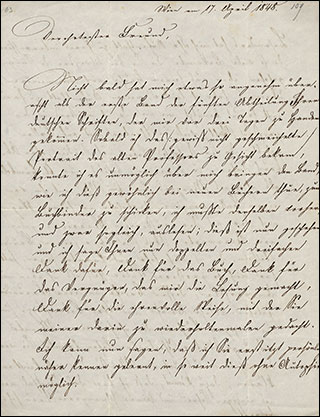 Wien am 17. April 1848.
Verehrtester Freund,
Nicht bald hat mich etwas so angenehm über-
rascht als der erste Band der fünften Abtheilung Ihrer
deutschen Schriften, der mir vor drei Tagen zu Handen
gekommen. Sobald ich das gewiß nicht geschmeichelte
Portrait des alten Professors zu Gesicht bekam,
konnte ich es unmöglich über mich bringen den Band,
wie ich dieß gewöhnlich bei neuen Büchern thue, zum
Buchbinder zu schicken, ich mußte denselben vorher
und zwar sogleich, auslesen; dieß ist nun geschehen
und ich sage Ihnen nun doppelten und dreifachen
Dank dafür, Dank für das Buch, Dank für
das Vergnügen, das mir die Lesung gemacht,
Dank für die ehrenvolle Weise, mit der Sie
meiner darin zu wiederholtenmalen gedacht.
Ich kann nun sagen, daß ich Sie erst itzt persönlich
näher kennen gelernt, in so weit dieß ohne Autopsie
möglich.